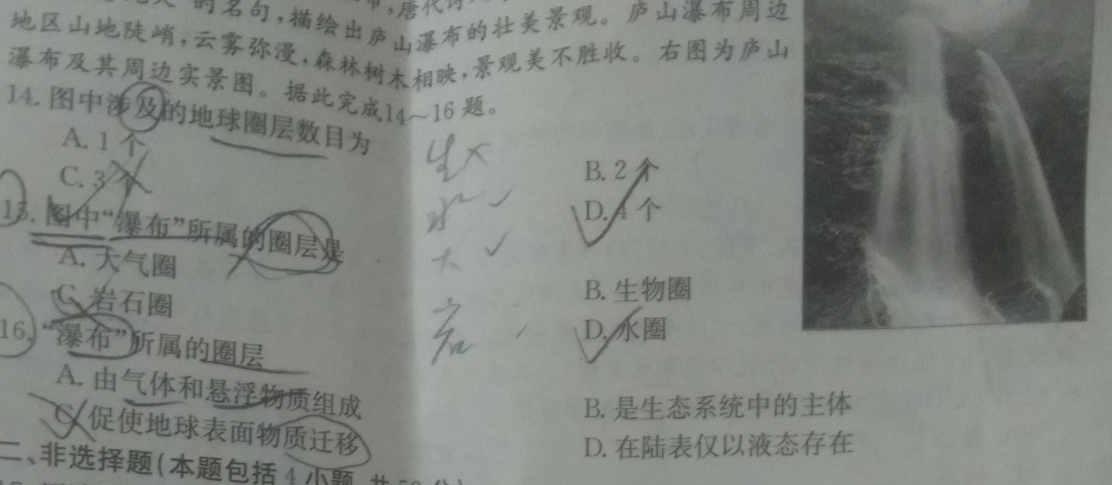 的名句,描绘出庐山瀑布的壮美景观。庐山瀑布周边
地区山地陡峭,云雾弥漫,森林树木相映,景观美不胜收。右图为庐山
瀑布及其周边实景图。据此完成14~16题。
14. 图中涉及的地球圈层数目为
A. 1个
B. 2个
C. 3个
D. 4个
15. 图中“瀑布”所属的圈层是
A. 大气圈
B. 生物圈
C. 岩石圈
D. 水圈
16. “瀑布”所属的圈层
A. 由气体和悬浮物质组成
B. 是生态系统中的主体
C. 促使地球表面物质迁移
D. 在陆表仅以液态存在
二、非选择题(本题包括4小题
生
水
大
岩